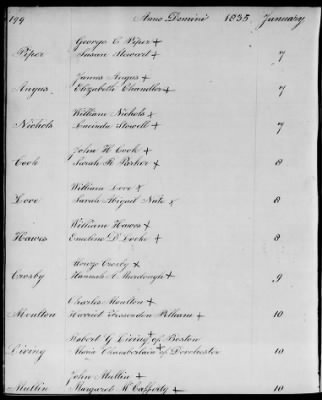 194 Anno Domini 1835 January
George C. Piper +
Piper Susan Steward + 7
James Angus +
Angus Elizabeth Chandler + 7
William Nichols x
Nichols Lucinda Stowell + 7
John H Cook +
Cook Sarah B Parker + 8
William Love x
Love Sarah Abigail Nute x 8
William Hawes +
Hawes Emeline D Locke + 8
Alonzo Crosby x
Crosby Hannah A + 9
Charles Moulton +
Moulton Harriet Fessenden Pelham + 10
Robert G Living + of Boston
Living Maria Chamberlain + of Dorchester 10
John Mullin +
Mullin Margaret McCafferty + 10